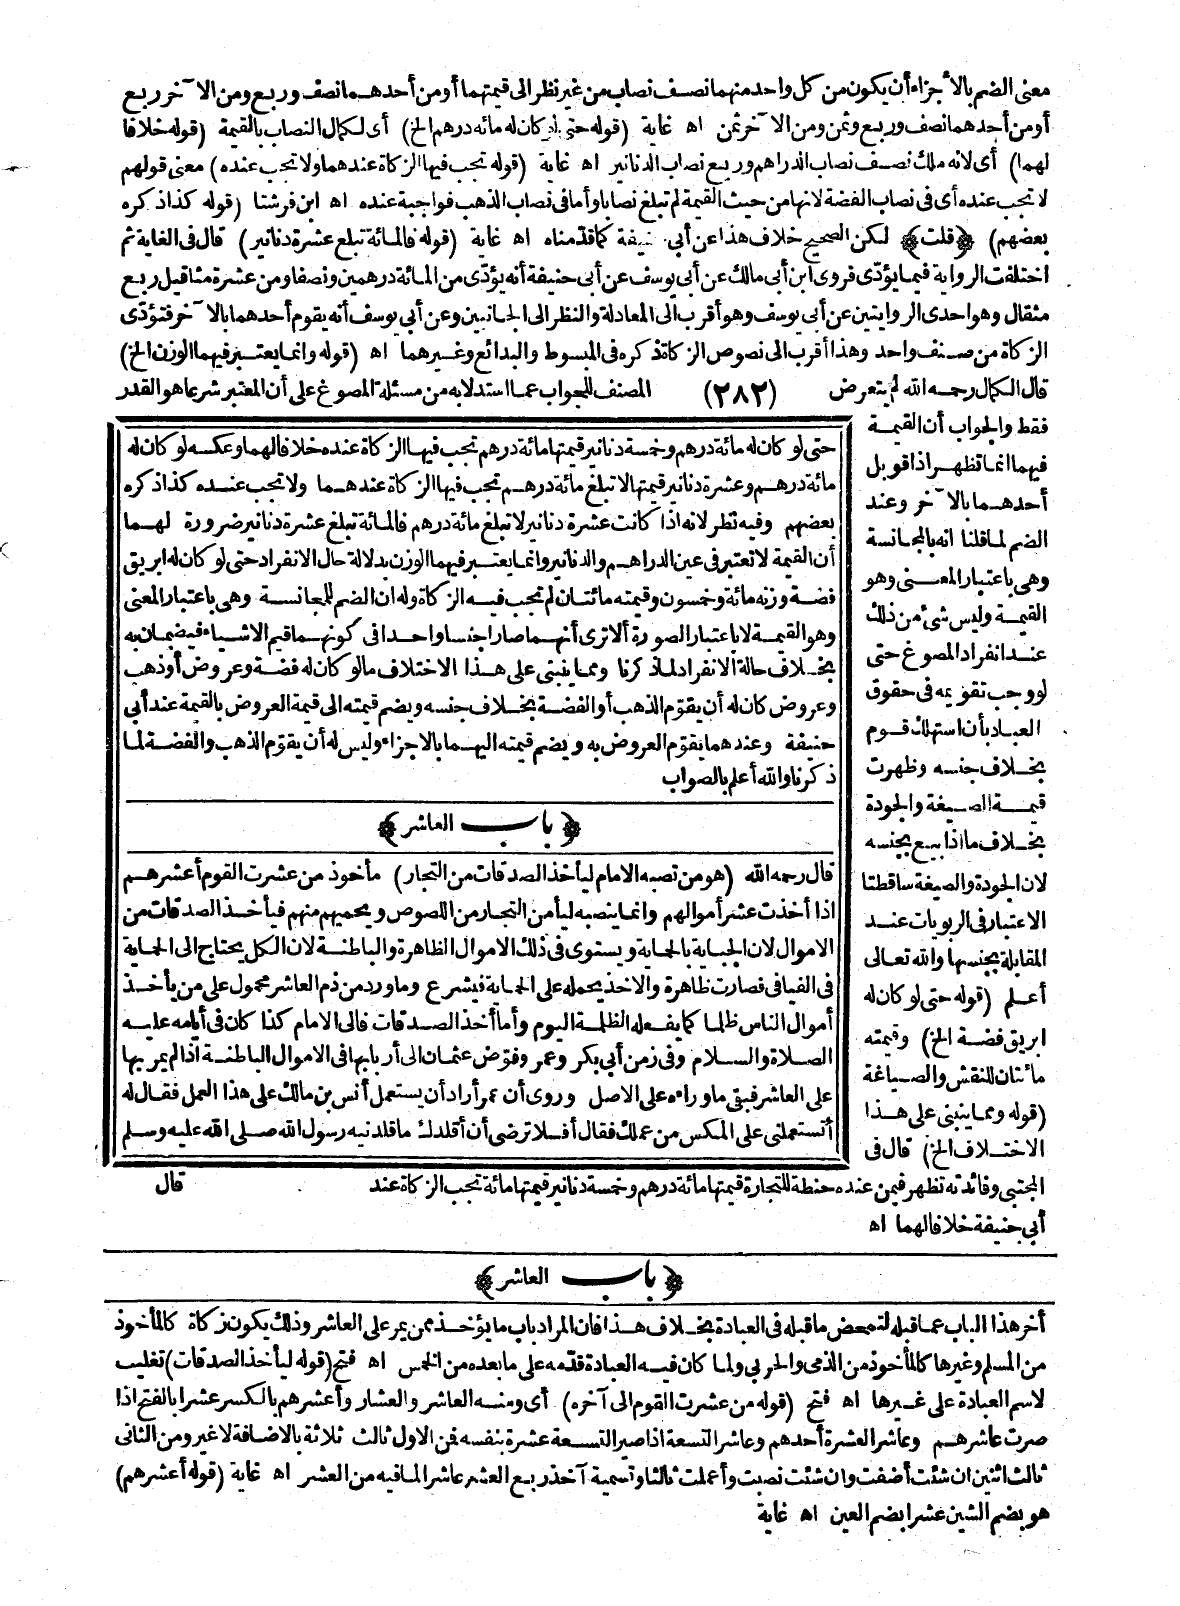 معنى الضم بالأجزاء أن يكون من كل واحد منهما نصف نصاب من غير نظر الى قيمتهما أو من أحدهما نصف وربع ومن الآخر ربع
أو من أحدهما نصف وربع وثمن ومن الآخر ثمن اه غاية (قوله حتى لو كان له مائة درهم الخ) أى لكمال النصاب بالقيمة (قوله خلافا
لهما) أى لانه ملك نصف نصاب الدراهم وربع نصاب الدنانير اه غاية (قوله تجب فيها الزكاة عندهما ولا تجب عنده) معنى قولهم
لا تجب عنده أى فى نصاب الفضة لانها من حيث القيمة لم تبلغ نصابا وأما فى نصاب الذهب فواجبة عنده اه ابن فرشتا (قوله كذا ذكره
بعضهم) ﴿قلت﴾ لكن الصحيح خلاف هذا عن أبى حنيفة كما قدمناه اه غاية (قوله فالمائة تبلغ عشرة دنانير) قال فى الغاية ثم
اختلفت الرواية فيما يؤدّى فروى ابن أبى مالك عن أبى يوسف عن أبى حنيفة أنه يؤدّى من المائة درهمين ونصفا ومن عشرة مثاقيل ربع
مثقال وهو احدى الروايتين عن أبى يوسف وهو أقرب الى المعادلة والنظر الى الجانبين وعن أبى يوسف أنه يقوم أحدهما بالآخر فتؤدّى
الزكاة من صنف واحد وهذا أقرب الى نصوص الزكاة ذكره فى المبسوط والبدائع وغيرهما اه (قوله وانما يعتبر فيهما الوزن الخ)
قال الكمال رحمه الله لم يتعرض (٢٨٢) المصنف للجواب عما استدلا به من مسئلة المصوغ على أن المعتبر شرعا هو القدر
فقط والجواب أن القيمة
فيهما انما تظهر اذا قوبل
أحدهما بالآخر وعند
الضم لما قلنا انه بالمجانسة
وهى باعتبار المعنى وهو
القيمة وليس شئ من ذلك
عند انفراد المصوغ حتى
لو وجب تقويمه فى حقوق
العباد بأن استهلك قوم
بخلاف جنسه وظهرت
قيمة الصيغة والجودة
بخلاف ما اذا بيع بجنسه
لان الجودة والصيغة ساقطتا
الاعتبار فى الربويات عند
المقابلة بجنسها والله تعالى
أعلم (قوله حتى لو كان له
ابريق فضة الخ) وقيمته
مائتان للنقش والصياغة
(قوله ومما ينبنى على هذا
الاختلاف الخ) قال فى
المجتبى وفائدته تظهر فيمن عنده حنطة للتجارة قيمتها مائة درهم وخمسة دنانير قيمتها مائة تجب الزكاة عند
أبى حنيفة خلافا لهما اه
حتى لو كان له مائة درهم وخمسة دنانير قيمتها مائة درهم تجب فيها الزكاة عنده خلافا لهما وعكسه لو كان له
مائة درهم وعشرة دنانير قيمتها لا تبلغ مائة درهم تجب فيها الزكاة عندهما ولا تجب عنده كذا ذكره
بعضهم وفيه نظر لانه اذا كانت عشرة دنانير لا تبلغ مائة درهم فالمائة تبلغ عشرة دنانير ضرورة لهما
أن القيمة لا تعتبر فى عين الدراهم والدنانير وانما يعتبر فيهما الوزن بدلالة حال الانفراد حتى لو كان له ابريق
فضة وزنه مائة وخمسون وقيمته مائتان لم تجب فيه الزكاة وله ان الضم للمجانسة وهى باعتبار المعنى
وهو القيمة لا باعتبار الصورة ألا ترى أنهما صارا جنسا واحدا فى كونهما قيم الاشياء فيضمان به
بخلاف حالة الانفراد لما ذكرنا ومما ينبنى على هذا الاختلاف ما لو كان له فضة وعروض أو ذهب
وعروض كان له أن يقوّم الذهب أو الفضة بخلاف جنسه ويضم قيمته الى قيمة العروض بالقيمة عند أبى
حنيفة وعندهما يقوّم العروض به ويضم قيمته اليهما بالاجزاء وليس له أن يقوّم الذهب والفضة لما
ذكرنا والله أعلم بالصواب
﴿باب العاشر﴾
قال رحمه الله (هو من نصبه الامام ليأخذ الصدقات من التجار) مأخوذ من عشرت القوم أعشرهم
اذا أخذت عشر أموالهم وانما ينصبه ليأمن التجار من اللصوص ويحميهم منهم فيأخذ الصدقات من
الاموال لان الجباية بالحماية ويستوى فى ذلك الاموال الظاهرة والباطنة لان الكل يحتاج الى الحماية
فى الفيافى فصارت ظاهرة والاخذ يحمله على الحماية فيشرع وما ورد من ذم العاشر محمول على من يأخذ
أموال الناس ظلما كما يفعله الظلمة اليوم وأما أخذ الصدقات فالى الامام كذا كان فى أيامه عليه
الصلاة والسلام وفى زمن أبى بكر وعمر وفوّض عثمان الى أربابها فى الاموال الباطنة اذا لم يمر بها
على العاشر فبقى ما وراءه على الاصل وروى أن عمر أراد أن يستعمل أنس بن مالك على هذا العمل فقال له
أتستعملنى على المكس من عملك فقال أفلا ترضى أن أقلدك ما قلدنيه رسول الله صلى الله عليه وسلم
قال
﴿باب العاشر﴾
أخر هذا الباب عما قبله لتمحض ما قبله فى العبادة بخلاف هذا فان المراد باب ما يؤخذ ممن يمر على العاشر وذلك يكون زكاة كالمأخوذ
من المسلم وغيرها كالمأخوذ من الذمى والحربى ولما كان فيه العبادة قدّمه على ما بعده من الخمس اه فتح (قوله ليأخذ الصدقات) تغليب
لاسم العبادة على غيرها اه فتح (قوله من عشرت القوم الى آخره) أى ومنه العاشر والعشار وأعشرهم بالكسر عشرا بالفتح اذا
صرت عاشرهم وعاشر العشرة أحدهم وعاشر التسعة اذا صير التسعة عشرة بنفسه فمن الاول ثالث ثلاثة بالاضافة لا غير ومن الثانى
ثالث اثنين ان شئت أضفت وان شئت نصبت وأعملت ثالثا وتسمية آخذ ربع العشر عاشرا لما فيه من العشر اه غاية (قوله أعشرهم)
هو بضم الشين عشرا بضم العين اه غاية